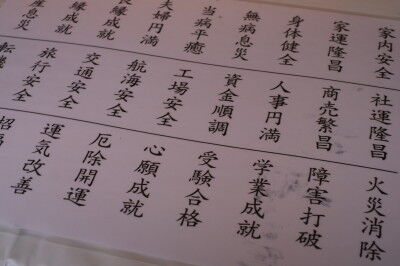 家内安全
家運隆昌
身体健全
無病息災
当病平癒
夫婦円満
縁成就
縁成就
社運隆昌
商売繁昌
人事円満
資金順調
工場安全
航海安全
交通安全
旅行安全
火災消除
障害打破
学業成就
受験合格
心願成就
厄除開運
運気改善
招福